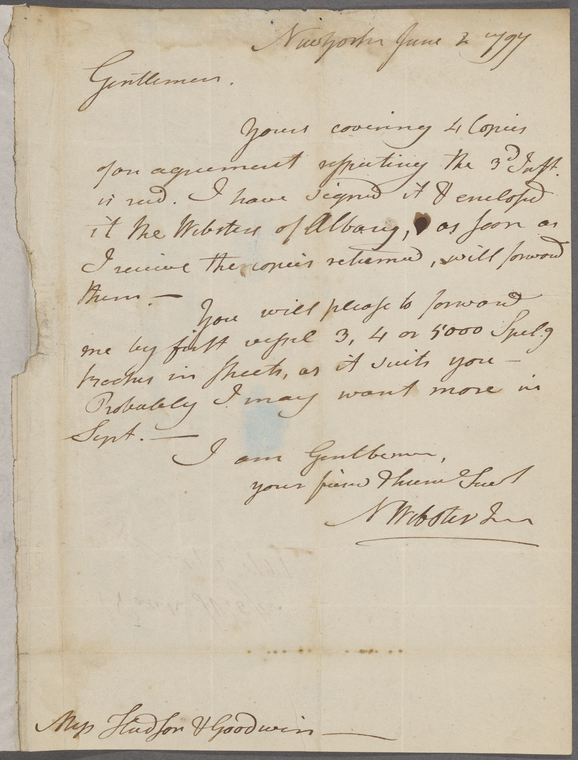 NewYork June 2 1797
Gentlemen.
Yours covering 4 Copies
of an agreement respecting the 3d Inst.
is recd. I have signed it & enclosed
it the Websters of Albany, as soon as
I receive the copies returned, will forward
them. —
You will please to forward
me by first vessel 3, 4 or 5000 Spel.g
books in sheets, as it suits you —
Probably I may want more in
Sept. —
I am Gentlemen,
your friend & hume Servt
N Webster Jun
Mess Hudson & Goodwin —